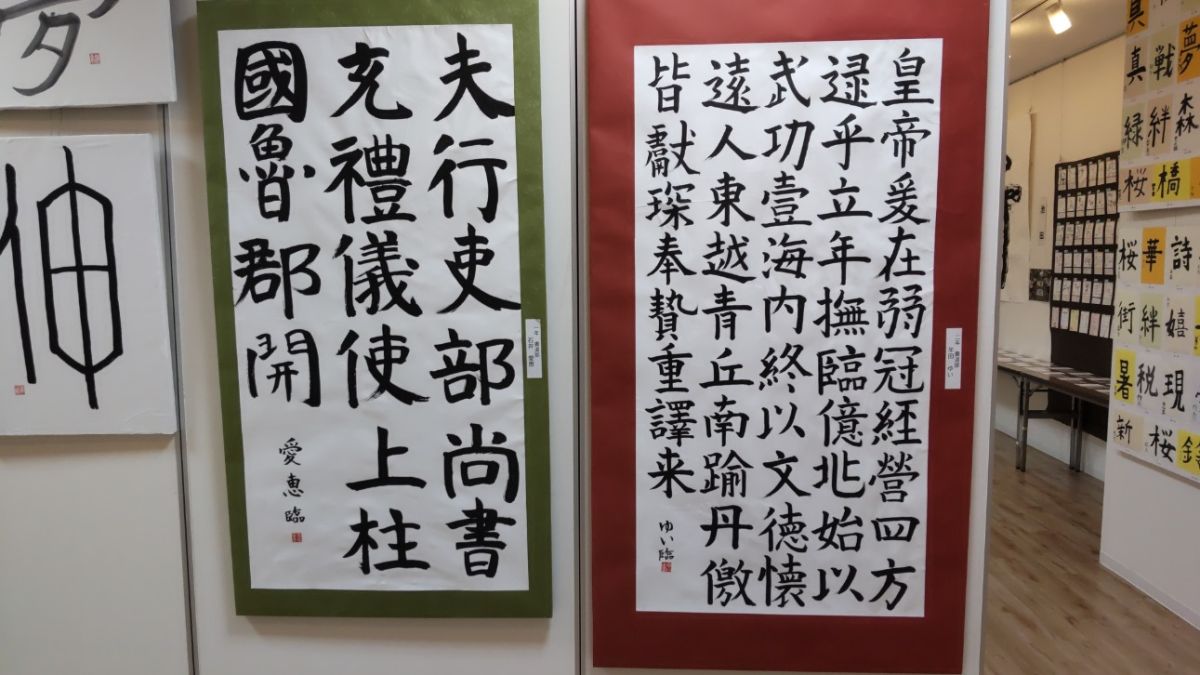 皇帝爰在弱冠経營四方
逮乎立年撫臨億兆始以
武功壹海内終以文德懷
遠人東越青丘南踰丹徼
皆獻琛奉贄重譯来
ゆい臨
夫行吏部尚書
充禮儀使上柱
國魯郡開
愛恵臨
一年 書道部
石井 愛恵
夢
伸
真
真 戦 夢
緑 絆 森
桜 橋
桜 華 詩
街 絆 嬉
暑 税 現
新 桜